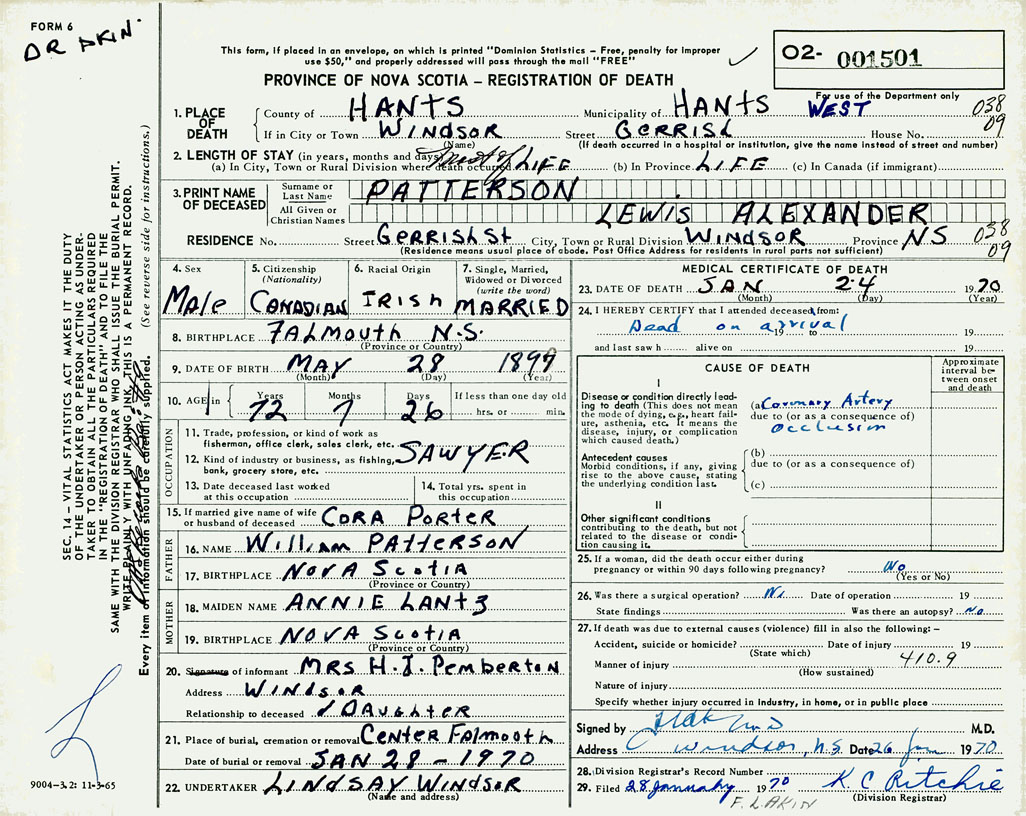 FORM 6
DR AKIN.
This form, if placed in an envelope, on which is printed "Dominion Statistics – Free, penalty for improper
use $50," and properly addressed will pass through the mail "FREE"
PROVINCE OF NOVA SCOTIA – REGISTRATION OF DEATH
O2- 001501
For use of the Department only
038
09
1. PLACE OF DEATH
County of HANTS Municipality of HANTS WEST
If in City or Town WINDSOR Street GERRISH House No.
(Name) (If death occurred in a hospital or institution, give the name instead of street and number)
2. LENGTH OF STAY (in years, months and days)
(a) In City, Town or Rural Division where death occurred Most of LIFE (b) In Province LIFE (c) In Canada (if immigrant)
3. PRINT NAME OF DECEASED
Surname or Last Name PATTERSON
All Given or Christian Names LEWIS ALEXANDER
RESIDENCE No. Street GERRISH St City, Town or Rural Division WINDSOR Province NS 038
09
(Residence means usual place of abode. Post Office Address for residents in rural parts not sufficient)
4. Sex Male
5. Citizenship (Nationality) CANADIAN
6. Racial Origin IRISH
7. Single, Married, Widowed or Divorced (write the word) MARRIED
8. BIRTHPLACE FALMOUTH N.S.
(Province or Country)
9. DATE OF BIRTH MAY 28 189
(Month) (Day) (Year)
10. AGE in Years Months Days If less than one day old
72 7 26 hrs. or min.
OCCUPATION
11. Trade, profession, or kind of work as
fisherman, office clerk, sales clerk, etc.
SAWYER
12. Kind of industry or business, as fishing,
bank, grocery store, etc.
13. Date deceased last worked
at this occupation
14. Total yrs. spent in
this occupation
15. If married give name of wife
or husband of deceased CORA PORTER
FATHER
16. NAME William PATTERSON
17. BIRTHPLACE NOVA SCOTIA
(Province or Country)
MOTHER
18. MAIDEN NAME ANNIE LANTZ
19. BIRTHPLACE NOVA SCOTIA
(Province or Country)
20. Signature of informant MRS H. J. PEMBERTON
Address WINDSOR
Relationship to deceased DAUGHTER
21. Place of burial, cremation or removal CENTER FALMOUTH
Date of burial or removal JAN 28 - 1970
22. UNDERTAKER LINDSAY WINDSOR
(Name and address)
MEDICAL CERTIFICATE OF DEATH
23. DATE OF DEATH JAN 24 1970
(Month) (Day) (Year)
24. I HEREBY CERTIFY that I attended deceased from:
Dead on arrival
19 to 19
and last saw h alive on 19
CAUSE OF DEATH
Approximate interval between onset and death
I
Disease or condition directly leading to death (This does not mean
the mode of dying, e.g., heart failure, asthenia, etc. It means the
disease, injury, or complication
which caused death.)
(a) Coronary Artery
due to (or as a consequence of)
occlusion
Antecedent causes
Morbid conditions, if any, giving
rise to the above cause, stating
the underlying condition last.
(b)
due to (or as a consequence of)
(c)
II
Other significant conditions
contributing to the death, but not
related to the disease or condition causing it.
25. If a woman, did the death occur either during
pregnancy or within 90 days following pregnancy? No
(Yes or No)
26. Was there a surgical operation? No Date of operation 19
State findings Was there an autopsy? No
27. If death was due to external causes (violence) fill in also the following: –
Accident, suicide or homicide? Date of injury 19
(State which) 410.9
Manner of injury
(How sustained)
Nature of injury
Specify whether injury occurred in industry, in home, or in public place
Signed by M.D.
Address Windsor, N.S. Date 26 Jan 1970
28. Division Registrar's Record Number
29. Filed 28 January 1970 K. C. Ritchie
(Division Registrar)
F. L. AKIN
SEC. 14 – VITAL STATISTICS ACT MAKES IT THE DUTY
OF THE UNDERTAKER OR PERSON ACTING AS UNDER-
TAKER TO OBTAIN ALL THE PARTICULARS REQUIRED
IN THE "REGISTRATION OF DEATH" AND TO FILE THE
SAME WITH THE DIVISION REGISTRAR WHO SHALL ISSUE THE BURIAL PERMIT.
WRITE PLAINLY WITH UNFADING INK, THIS IS A PERMANENT RECORD.
Every item of information should be carefully supplied. (See reverse side for instructions.)
9004-3.2: 11-3-65